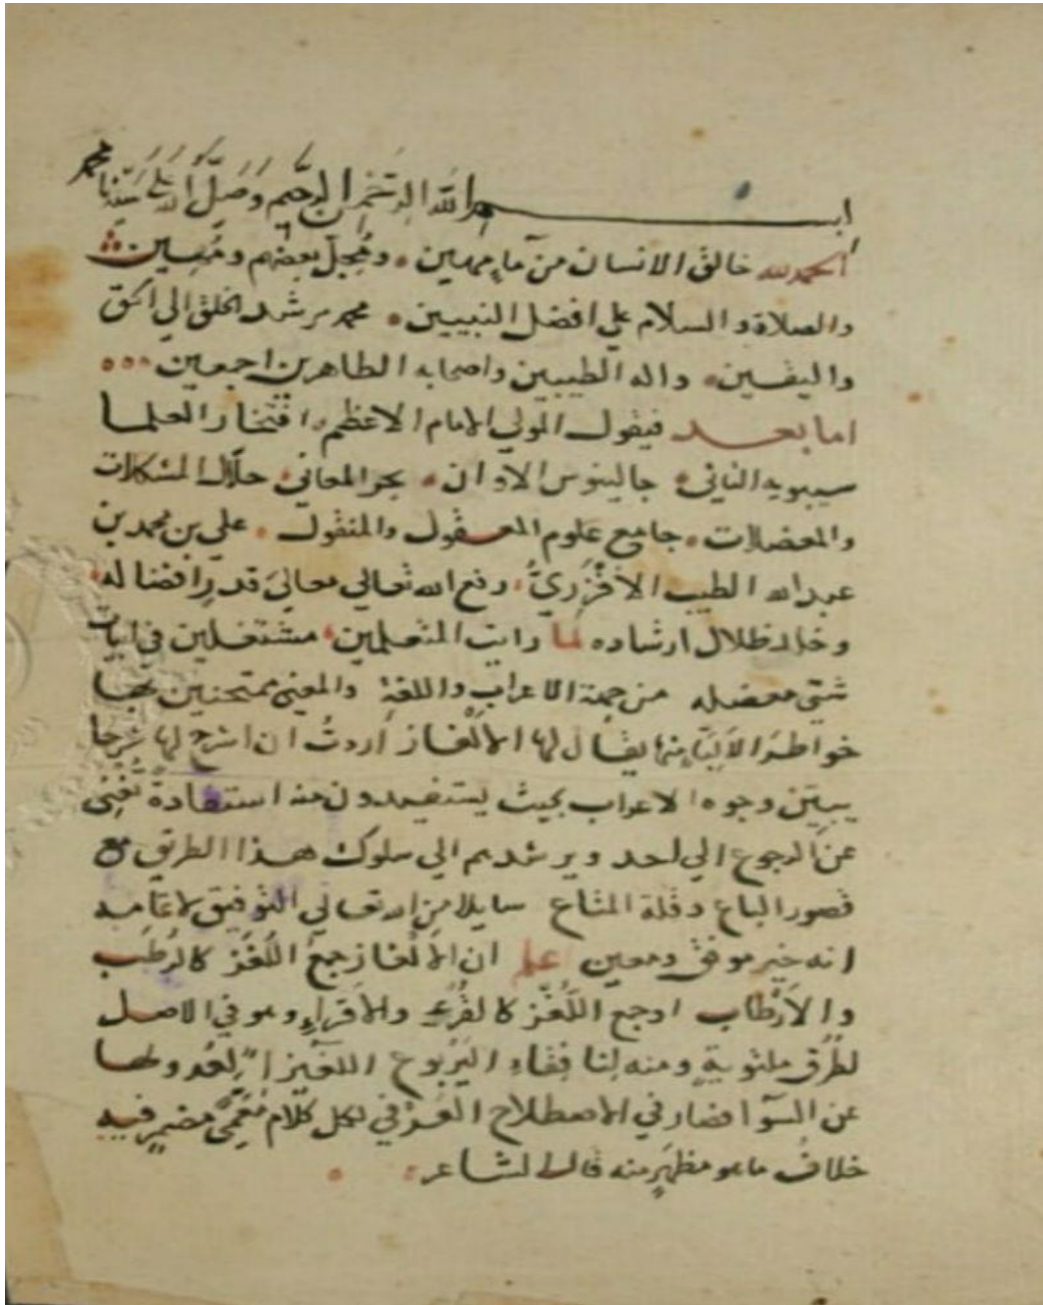 بسم الله الرحمن الرحيم وصلى الله على سيدنا محمد
الحمد لله خالق الانسان من ماء مهين ومبجل بعضهم ومهين
والصلاة والسلام علي افضل النبيين محمد مرشد الخلق الي الحق
واليقين واله الطيبين واصحابه الطاهرين اجمعين
اما بعد فيقول المولي الامام الاعظم افتخار العلما
سيبويه الثاني جالينوس الاوان بحر المعاني حلال المشكلات
والمعضلات جامع علوم المعقول والمنقول علي بن محمد بن
عبد الله الطبيب الافْزَريُّ رفع الله تعالي معالي قدر افضاله
وخلد ظلال ارشاده لما رايت المتعلمين مشتغلين في ابيات
شتي معضله من جهة الاعراب واللغة والمعني ممتحنين بها
خواطر الالبّاء منها يقال لها الالْغاز اردتُ ان اشرح لها شرحا
يبين وجوه الاعراب بحيث يستفيدون منه استفادةً تُغني
عن الرجوع الي احد ويرشدهم الي سلوك هذا الطريق مع
قصور الباع وقلة المتاع سايلا من الله تعالي التوفيق لاتمامه
انه خير موفق ومعين اعلم ان الالغاز جمع اللُغَز كالرُطَب
والاَرْطاب او جمع اللُّغْز كالقُرْءِ والاَقْراءِ وهو في الاصل
لطُرُق ملتويةٍ ومنه لنافِقاءِ اليَرْبوع اللغَّيزا لعدولها
عن السوآ فصار في الاصطلاح العُرْفي لكل كلام مُعَمّىً مضمرٍ فيه
خلافُ ما هو مظهَرٍ منه قال الشاعر